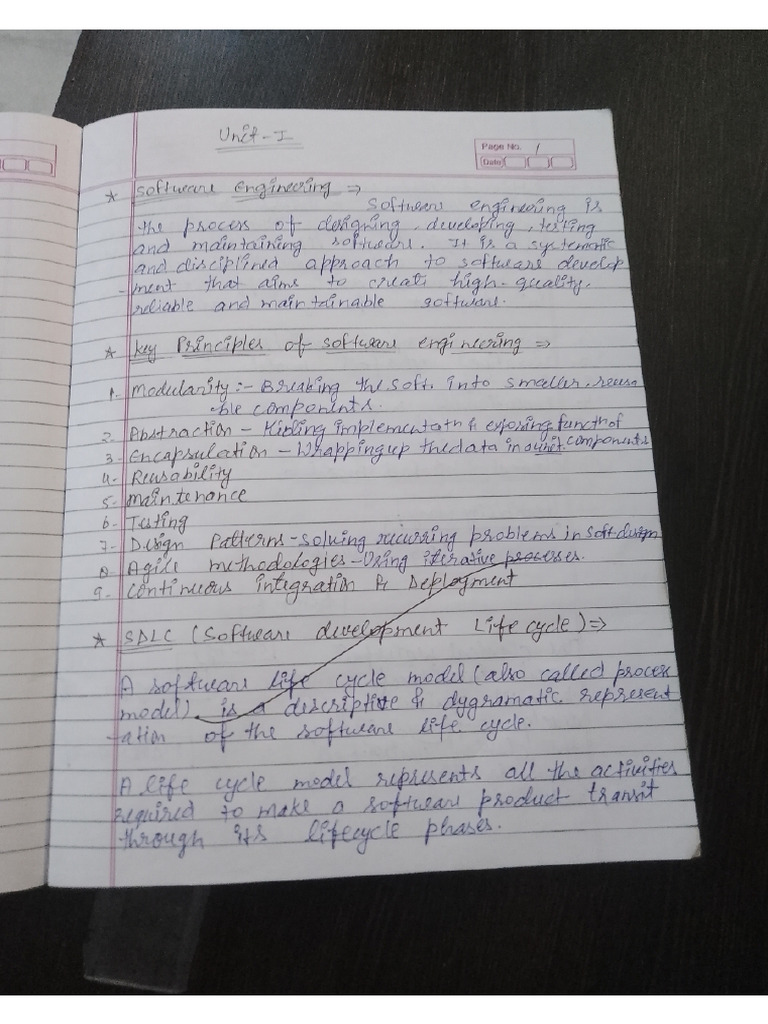 Unit-I
Page No. 1
Date
* Software Engineering ⇒
Software engineering is
the process of designing, developing, testing
and maintaining software. It is a systematic
and disciplined approach to software develop
-ment that aims to create high-quality,
reliable and maintainable software.
* Key Principles of software engineering ⇒
1. Modularity :- Breaking the soft. into smaller, reusa
ble components.
2. Abstraction - Hiding implementatn & exposing functn of
components
3. Encapsulation - Wrapping up the data in a unit.
4. Reusability
5. Maintenance
6. Testing
7. Design Patterns - solving recurring problems in soft. design
8. Agile methodologies - Using iterative processes.
9. Continuous integration & Deployment
* SDLC (Software development Life cycle) ⇒
A software life cycle model (also called process
model) is a descriptive & dygramatic represent
tation of the software life cycle.
A life cycle model represents all the activities
required to make a software product transit
through its lifecycle phases.